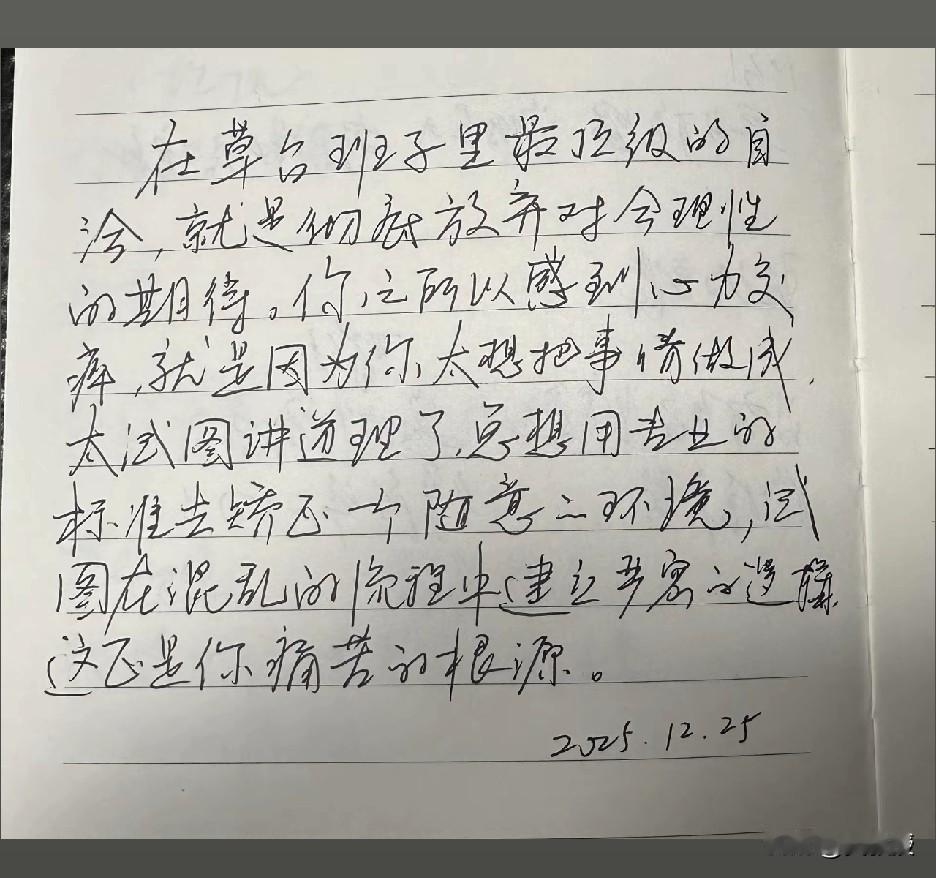 在草台班子里最顶级的自
洽,就是彻底放弃对合理性
的期待。你之所以感到心力交
瘁,就是因为你太想把事情做成,
太试图讲道理了,总想用专业的
标准去矫正一个随意的环境,试
图在混乱的流程中建立严密的逻辑
这正是你痛苦的根源。
2025.12.25